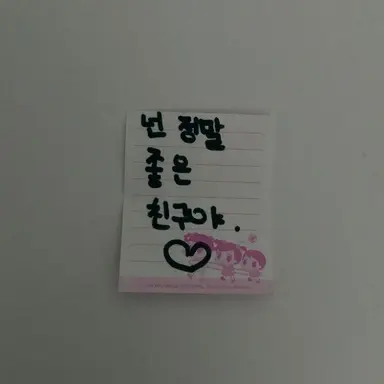 넌 정말
좋은
친구야.